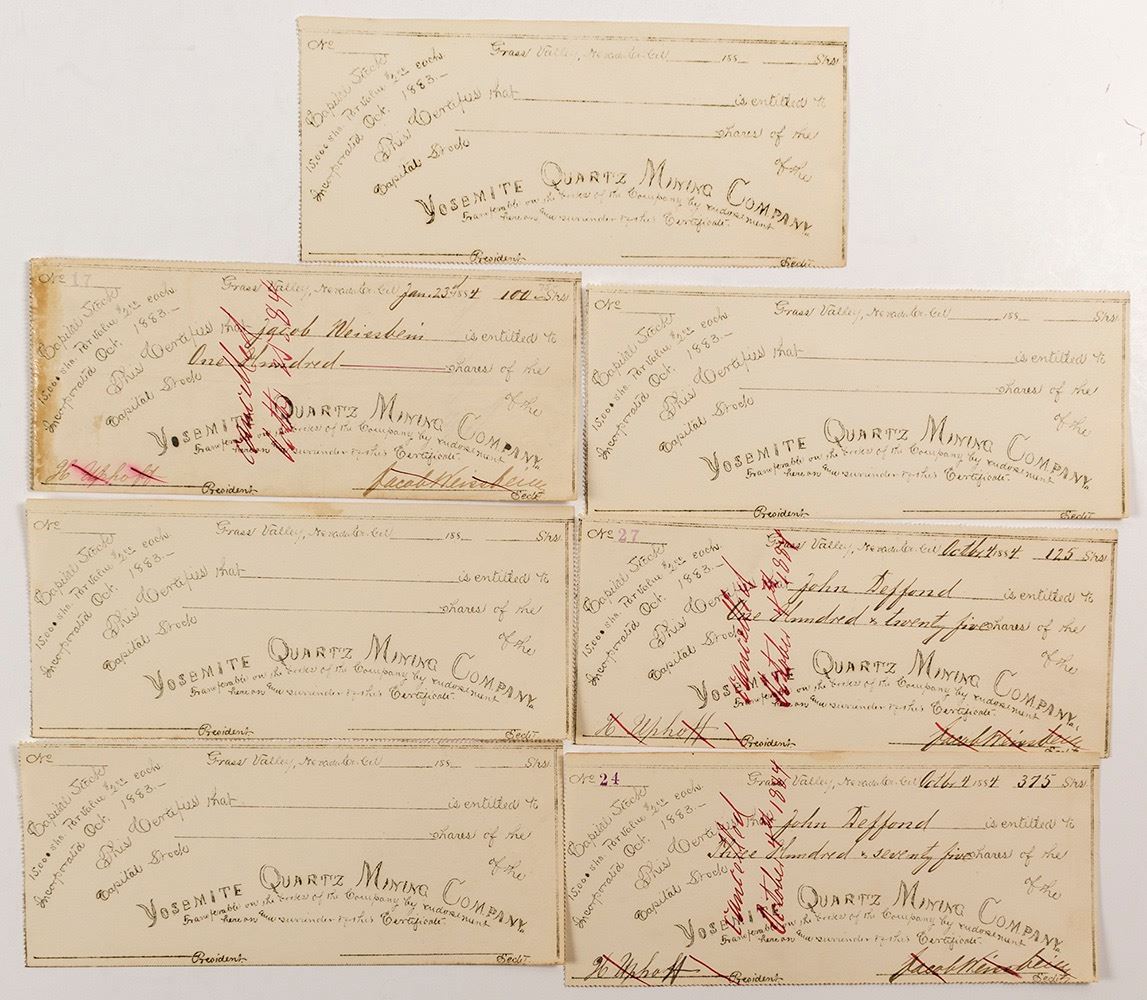 No Grass Valley, Nevada Co. Cal 188 Shs
Capital Stock
15,000 sha. Par Value $2.00 each.
Incorporated Oct. 1883.—
This Certifies that is entitled to
Capital Stock shares of the
of the
YOSEMITE QUARTZ MINING COMPANY.
Transferable on the books of the Company by endorsement
hereon and surrender of this Certificate.
President Sect.
No 17 Grass Valley, Nevada Co. Cal Jan. 23d 1884 100 Shs
Capital Stock
15,000 sha. Par Value $2.00 each.
Incorporated Oct. 1883.—
This Certifies that Jacob Weissbein is entitled to
Capital Stock One Hundred shares of the
of the
YOSEMITE QUARTZ MINING COMPANY.
Transferable on the books of the Company by endorsement
hereon and surrender of this Certificate.
cancelled
H Uphoff President Jacob Weissbein Sect.
No Grass Valley, Nevada Co. Cal 188 Shs
Capital Stock
15,000 sha. Par Value $2.00 each.
Incorporated Oct. 1883.—
This Certifies that is entitled to
Capital Stock shares of the
of the
YOSEMITE QUARTZ MINING COMPANY.
Transferable on the books of the Company by endorsement
hereon and surrender of this Certificate.
President Sect.
No Grass Valley, Nevada Co. Cal 188 Shs
Capital Stock
15,000 sha. Par Value $2.00 each.
Incorporated Oct. 1883.—
This Certifies that is entitled to
Capital Stock shares of the
of the
YOSEMITE QUARTZ MINING COMPANY.
Transferable on the books of the Company by endorsement
hereon and surrender of this Certificate.
President Sect.
No 27 Grass Valley, Nevada Co. Cal Octbr 4 1884 125 Shs
Capital Stock
15,000 sha. Par Value $2.00 each.
Incorporated Oct. 1883.—
This Certifies that John Deffond is entitled to
Capital Stock One Hundred & twenty five shares of the
of the
YOSEMITE QUARTZ MINING COMPANY.
Transferable on the books of the Company by endorsement
hereon and surrender of this Certificate.
cancelled
October 4th 1884
H Uphoff President Jacob Weissbein Sect.
No Grass Valley, Nevada Co. Cal 188 Shs
Capital Stock
15,000 sha. Par Value $2.00 each.
Incorporated Oct. 1883.—
This Certifies that is entitled to
Capital Stock shares of the
of the
YOSEMITE QUARTZ MINING COMPANY.
Transferable on the books of the Company by endorsement
hereon and surrender of this Certificate.
President Sect.
No 24 Grass Valley, Nevada Co. Cal Octbr 4 1884 375 Shs
Capital Stock
15,000 sha. Par Value $2.00 each.
Incorporated Oct. 1883.—
This Certifies that John Deffond is entitled to
Capital Stock Three Hundred & seventy five shares of the
of the
YOSEMITE QUARTZ MINING COMPANY.
Transferable on the books of the Company by endorsement
hereon and surrender of this Certificate.
cancelled
October 4th 1884
H Uphoff President Jacob Weissbein Sect.